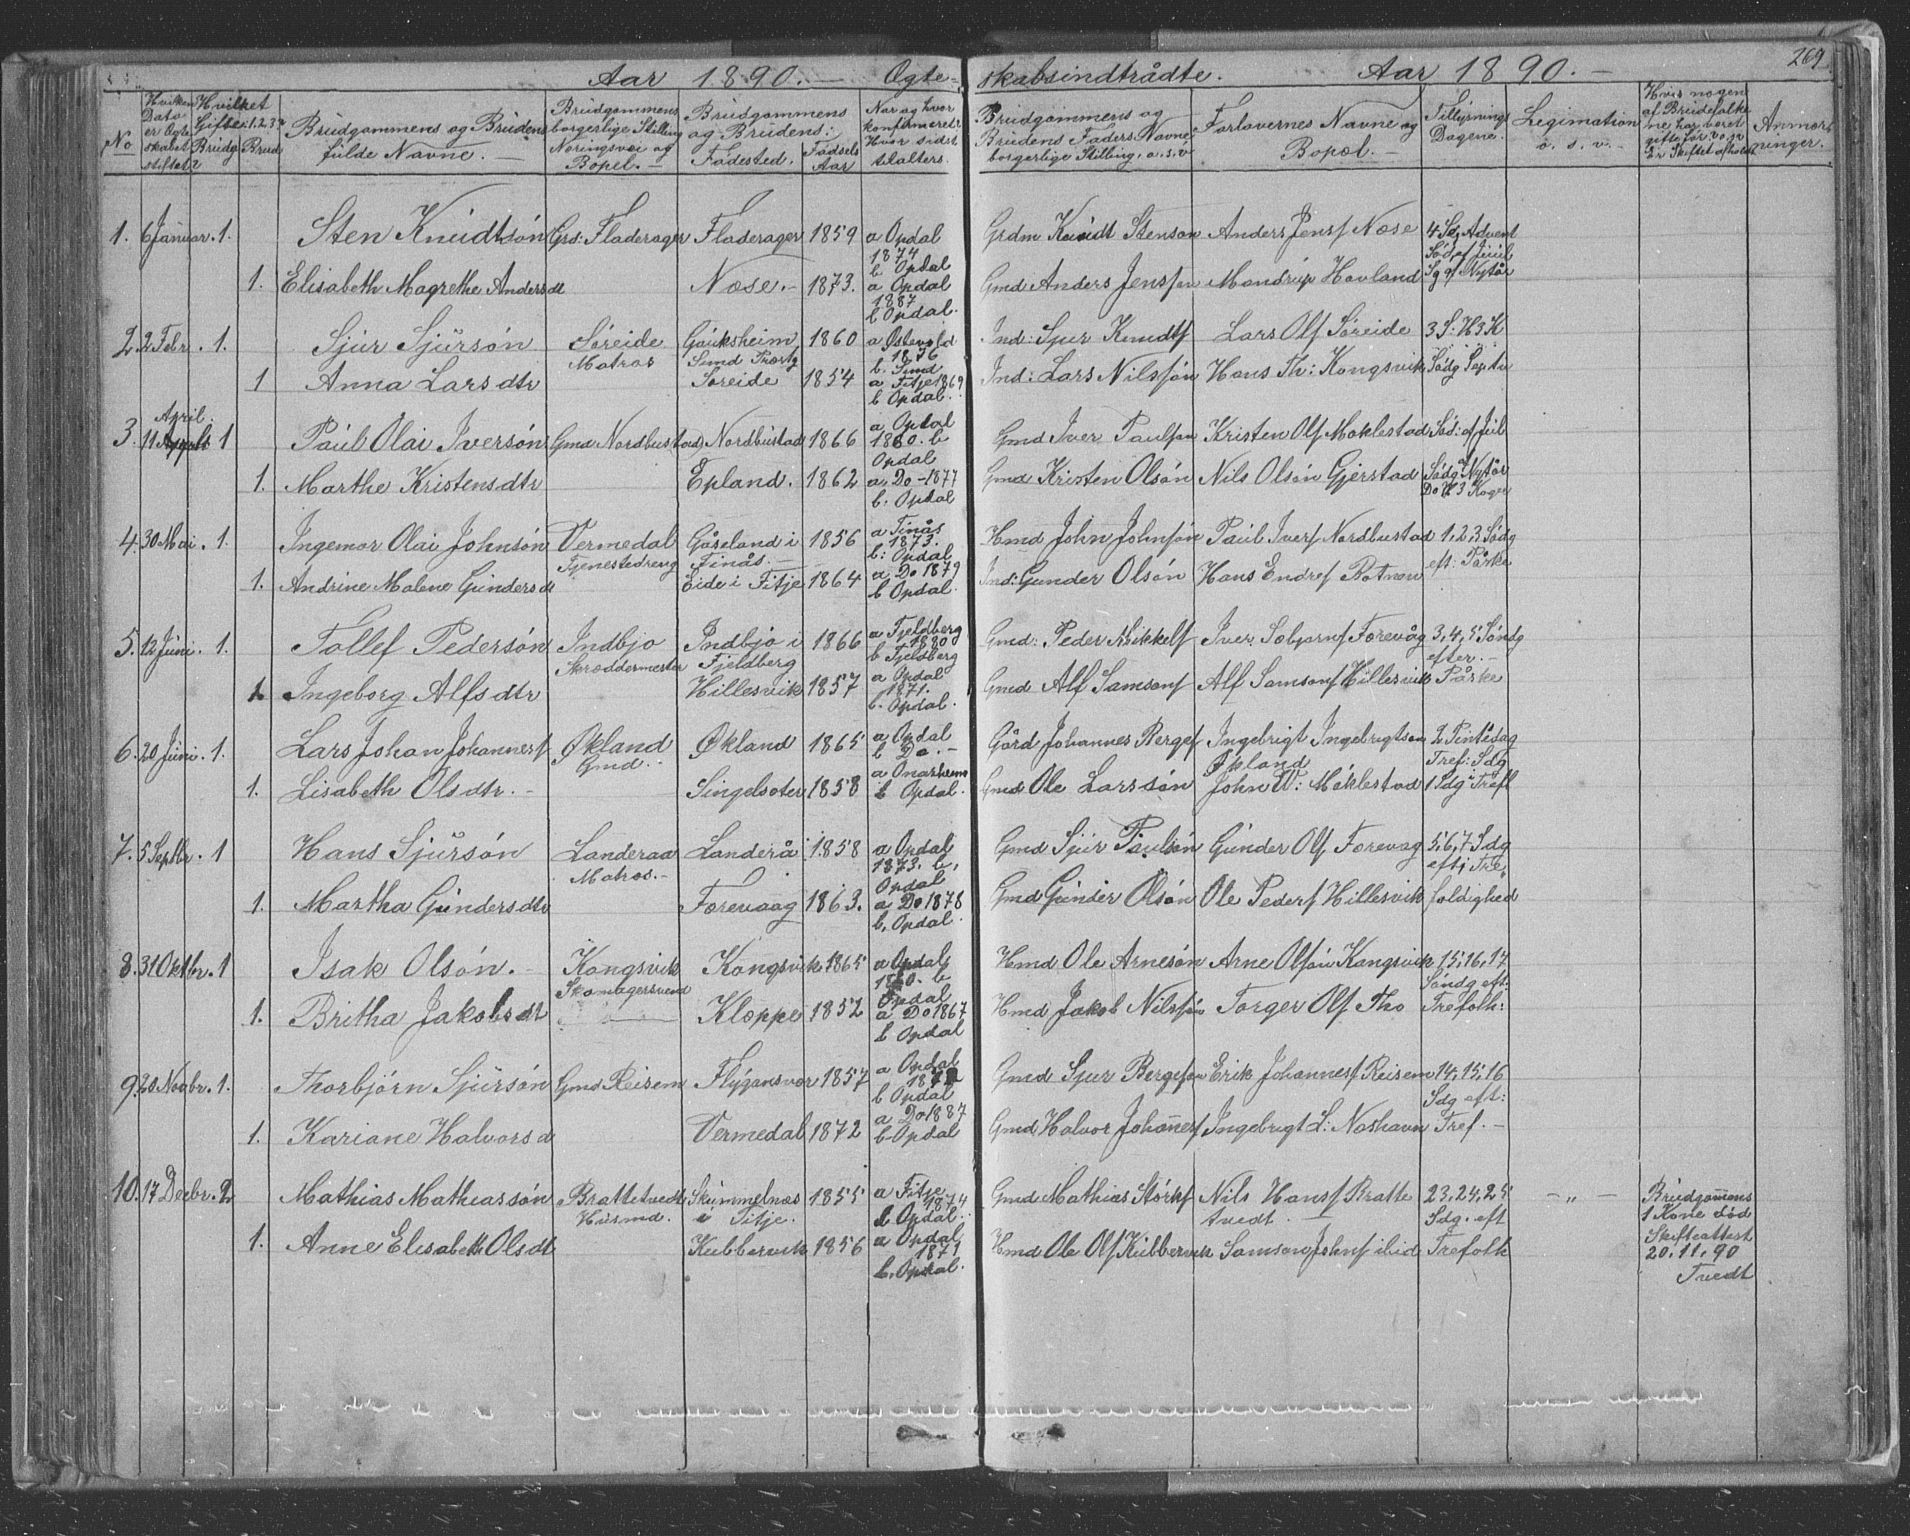 Aar 1890. — Ægte- skabsindtrådte. Aar 1890. — 269
No
Hvilken Dato er Ægteskabet stiftet?
Hvilket Gifte: 1.2.3?
Brudg Brud
Brudgommens og Brudens fulde Navne. —
Brudgommens borgerlige Stilling Næringsvei og Bopel. —
Brudgommens og Brudens: Fødested. Fødsels Aar
Nar og hvor konfirmeret? Hvor sidst tilalters.
Brudgommens og Brudens Faders Navne, borgerlige Stilling, o.s.v
Forlovernes Navne og Bopæl. —
Tillysnings Dagene.
Legimation o. s. v. —
Hvis nogen af Brudefolkene har været gift før o.s.v Er Skiftet afholdt
Anmærkninger.
1. 6 Januar. 1. Sten Knudtsön Grd: Fladerager Fladerager 1859 a Opdal 1874 b. Opdal Grdm Knudt Stenson Anders Jensf Nøse 4 Sø, Advent Sød, ef Juul
1. Elisabeth Magrethe Andersdt Nøse. — 1873. a Opdal 1887 b Opdal. Gmd Anders Jensson Mandrup Hovland Sg ef Nytår
2. 2 Febr. 1. Sjur Sjürsön Søreide Matros Gauksheim Sund Præstg 1860 a Østevold 1876 b. Sund Ind: Sjur Knudtf Lars Olf Søreide 3 S: H 3 K
1 Anna Larsdtr Søreide 1854 a Fitje 1869 b Opdal. Ind: Lars Nilsson Hans Th: Kongsvik Sødg Septu
3. 11 April 1 Paul Olai Iversön Gmd Nordbustad Nordbustad 1866 a Opdal 1880. b Opdal Gmd Iver Paulson Kristen Olf Møklestad Sød: ef Juil
1. Marthe Kristensdtr Epland. 1862 a. Do - 1877 b. Opdal Gmd Kristen Olsön Nils Olsön Gjerstad Sødg Nytår Do H 3 Koger
4. 30 Mai. 1. Ingemor Olai Johnsön Vermedal Tjenestedreng Gåseland i Finås. 1856 a Finås 1873. b: Opdal Hmd John Johnsön Paul Iversf Nordbustad 1, 2, 3 Sødg
1. Andrine Malene Gundersdt Eide i Fitje 1864 a. Do 1879 b Opdal. Ind: Gunder Olsön Hans Endref Rotnøn eft: Påske
5. 12 Juni. 1. Tollef Pedersön Indbjo Skræddermester Indbjo i Fjeldberg 1866 a Fjeldberg 1880 b Fjeldberg Gmd: Peder Mikkelf Iver Sobjørnf Forevåg 3, 4, 5 Søndg efter. —
1. Ingeborg Alfsdtr Hillesvik 1857 a Opdal 1871. b. Opdal. Gmd Alf Samsonf Alf Samsonf Hillesvik Påske
6. 20 Juni. 1. Lars Johan Johannesf Økland Gmd. Økland 1865 a Opdal b Do. — Gård Johannes Bergef Ingebrigt Ingebrigtson Økland 2 Pintsdag Tref: Sdg
1. Lisabeth Olsdtr. — Singelsoter 1858 a Onarheim b Opdal. Gmd Ole Larssön John W: Møklestad 1 Sdg i Trefl
7. 5 Septbr. 1 Hans Sjürsön Landeraa Matros. — Landerå 1858 a Opdal 1873. b, Opdal Gmd Sjur Paulsön Gunder Olf Forevag 5, 6, 7 Sdg efti Tre,
1. Martha Gundersdtr Forevaag 1863. a Do 1878 b. Opdal. Gmd Gunder Olsön Ole Pedersf Hillesvik foldighed
8. 31 Oktbr. 1 Isak Olsön. — Kongsvik Skomagersvend Kongsvik 1865 a Opdal 1880. b Opdal Hmd Ole Arnesön Arne Olsön Kongsvik 15, 16, 17 Søndg eft:
1. Britha Jakobsdt Kloppe 1852 a Do 1867 b Opdal Hmd Jakob Nilsson Torger Olf Tho Trefolh:
9. 20 Novbr. 1. Thorbjörn Sjürsön Gmd Reisem Flygansvær 1857 a Opdal b Opdal Gmd Sjur Bergeson Erik Johannesf Reisem 14, 15, 16 Sdg eft:
1. Kariane Halvorsd Vermedal 1872 a Do 1887 b Opdal Gmd Halvor Johannesf Ingebrigt L: Noshavn Tref. —
10. 17 Decbr. 2 Mathias Mathiassön Brattetvedt Husmd. Skummelnæs i Fitje. 1855 a Fitje 1874 b Opdal. Gmd Mathias Størkf Nils Hansf Brattetvedt. — 23, 24, 25 Sdg. eft — „ — Brudgommens 1 Kone död Skifteattest 20.11.90 Tvedt
1. Anne Elisabeth Olsdt Kubbervik 1856 a Opdal 1871 b. Opdal. Hmd Ole Olf Kubbervik Samson Johnf ibid Trefolh